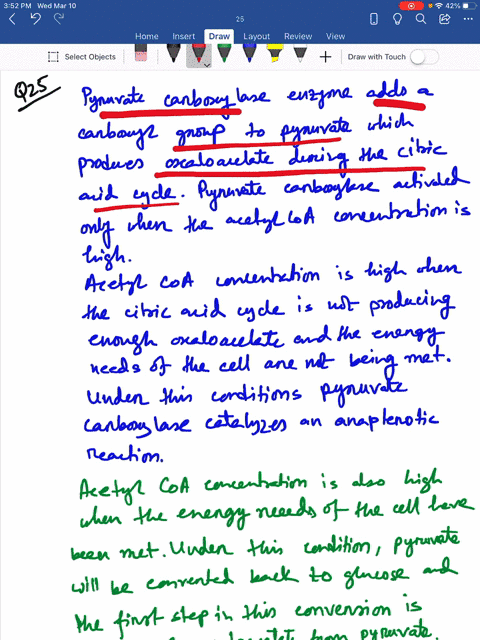 3:52 PM Wed Mar 10
42%
25
Home Insert Draw Layout Review View
Select Objects
Draw with Touch
Q25
Pyruvate carboxylase enzyme adds a
carboxyl group to pyruvate which
produces oxaloacetate during the citric
acid cycle. Pyruvate carboxylase activated
only when the acetyl CoA concentration is
high.
Acetyl CoA concentration is high when
the citric acid cycle is not producing
enough oxaloacetate and the energy
needs of the cell are not being met.
Under this conditions pyruvate
carboxylase catalyzes an anaplerotic
reaction.
Acetyl CoA concentration is also high
when the energy needs of the cell have
been met. Under this condition, pyruvate
will be converted back to glucose and
the first step in this conversion is
from pyruvate.